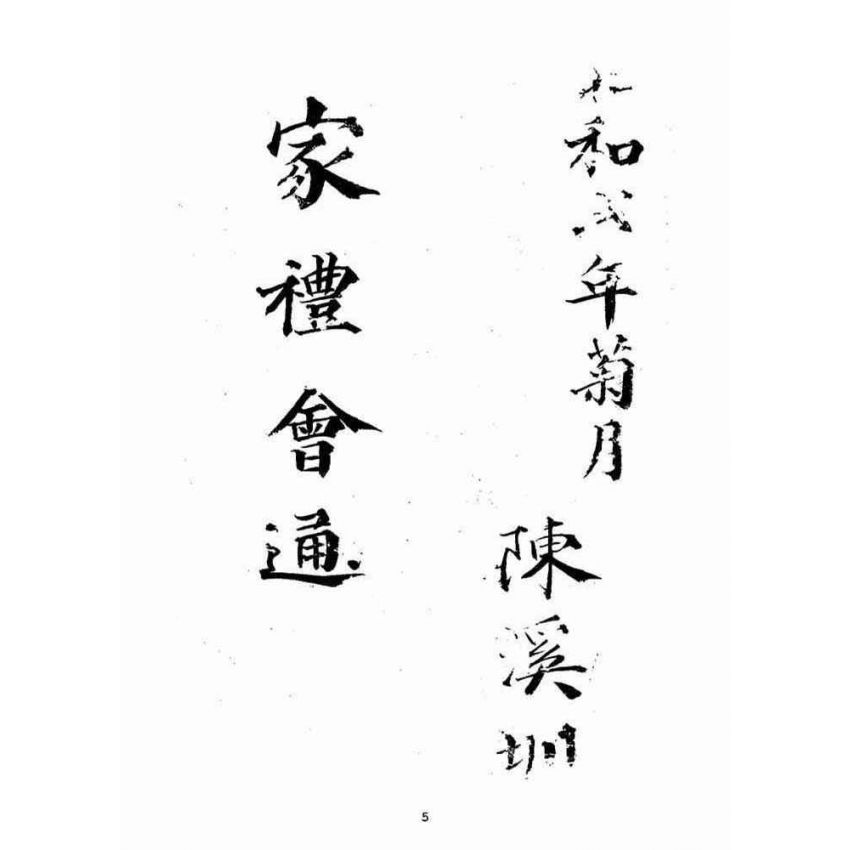 和年菊月
陳溪圳
家禮會通
5